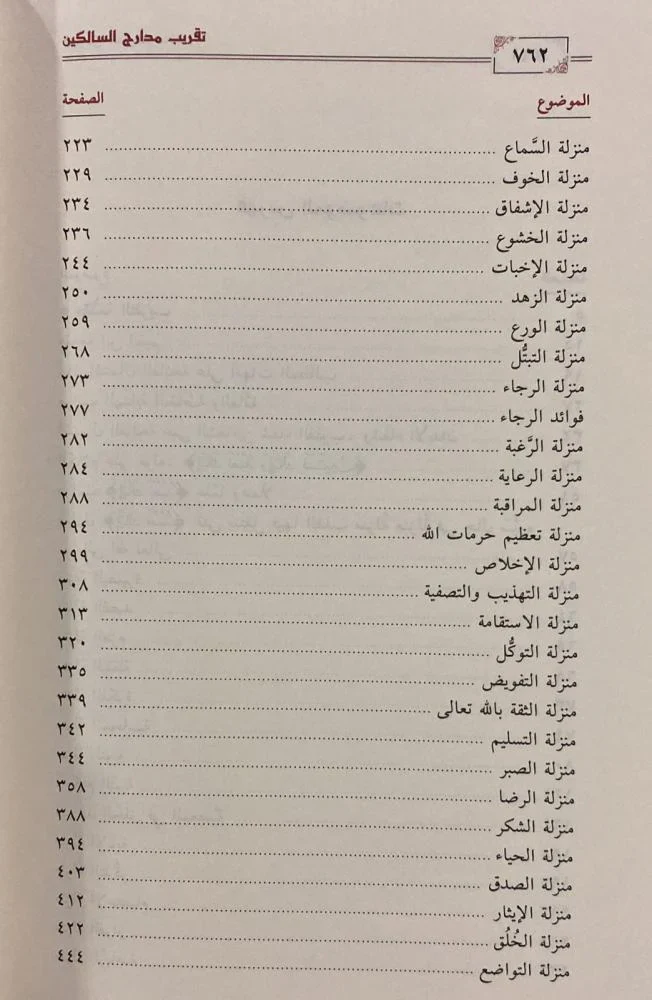 تقريب مدارج السالكين
٧٦٢
الموضوع الصفحة
منزلة السَّماع ................ ٢٢٣
منزلة الخوف ................ ٢٢٩
منزلة الإشفاق ................ ٢٣٤
منزلة الخشوع ................ ٢٣٦
منزلة الإخبات ................ ٢٤٤
منزلة الزهد ................ ٢٥٠
منزلة الورع ................ ٢٥٩
منزلة التبتُّل ................ ٢٦٨
منزلة الرجاء ................ ٢٧٣
فوائد الرجاء ................ ٢٧٧
منزلة الرَّغبة ................ ٢٨٢
منزلة الرعاية ................ ٢٨٤
منزلة المراقبة ................ ٢٨٨
منزلة تعظيم حرمات الله ................ ٢٩٤
منزلة الإخلاص ................ ٢٩٩
منزلة التهذيب والتصفية ................ ٣٠٨
منزلة الاستقامة ................ ٣١٣
منزلة التوكُّل ................ ٣٢٠
منزلة التفويض ................ ٣٣٥
منزلة الثقة بالله تعالى ................ ٣٣٩
منزلة التسليم ................ ٣٤٢
منزلة الصبر ................ ٣٤٤
منزلة الرضا ................ ٣٥٨
منزلة الشكر ................ ٣٨٨
منزلة الحياء ................ ٣٩٤
منزلة الصدق ................ ٤٠٣
منزلة الإيثار ................ ٤١٢
منزلة الخُلُق ................ ٤٢٢
منزلة التواضع ................ ٤٤٤